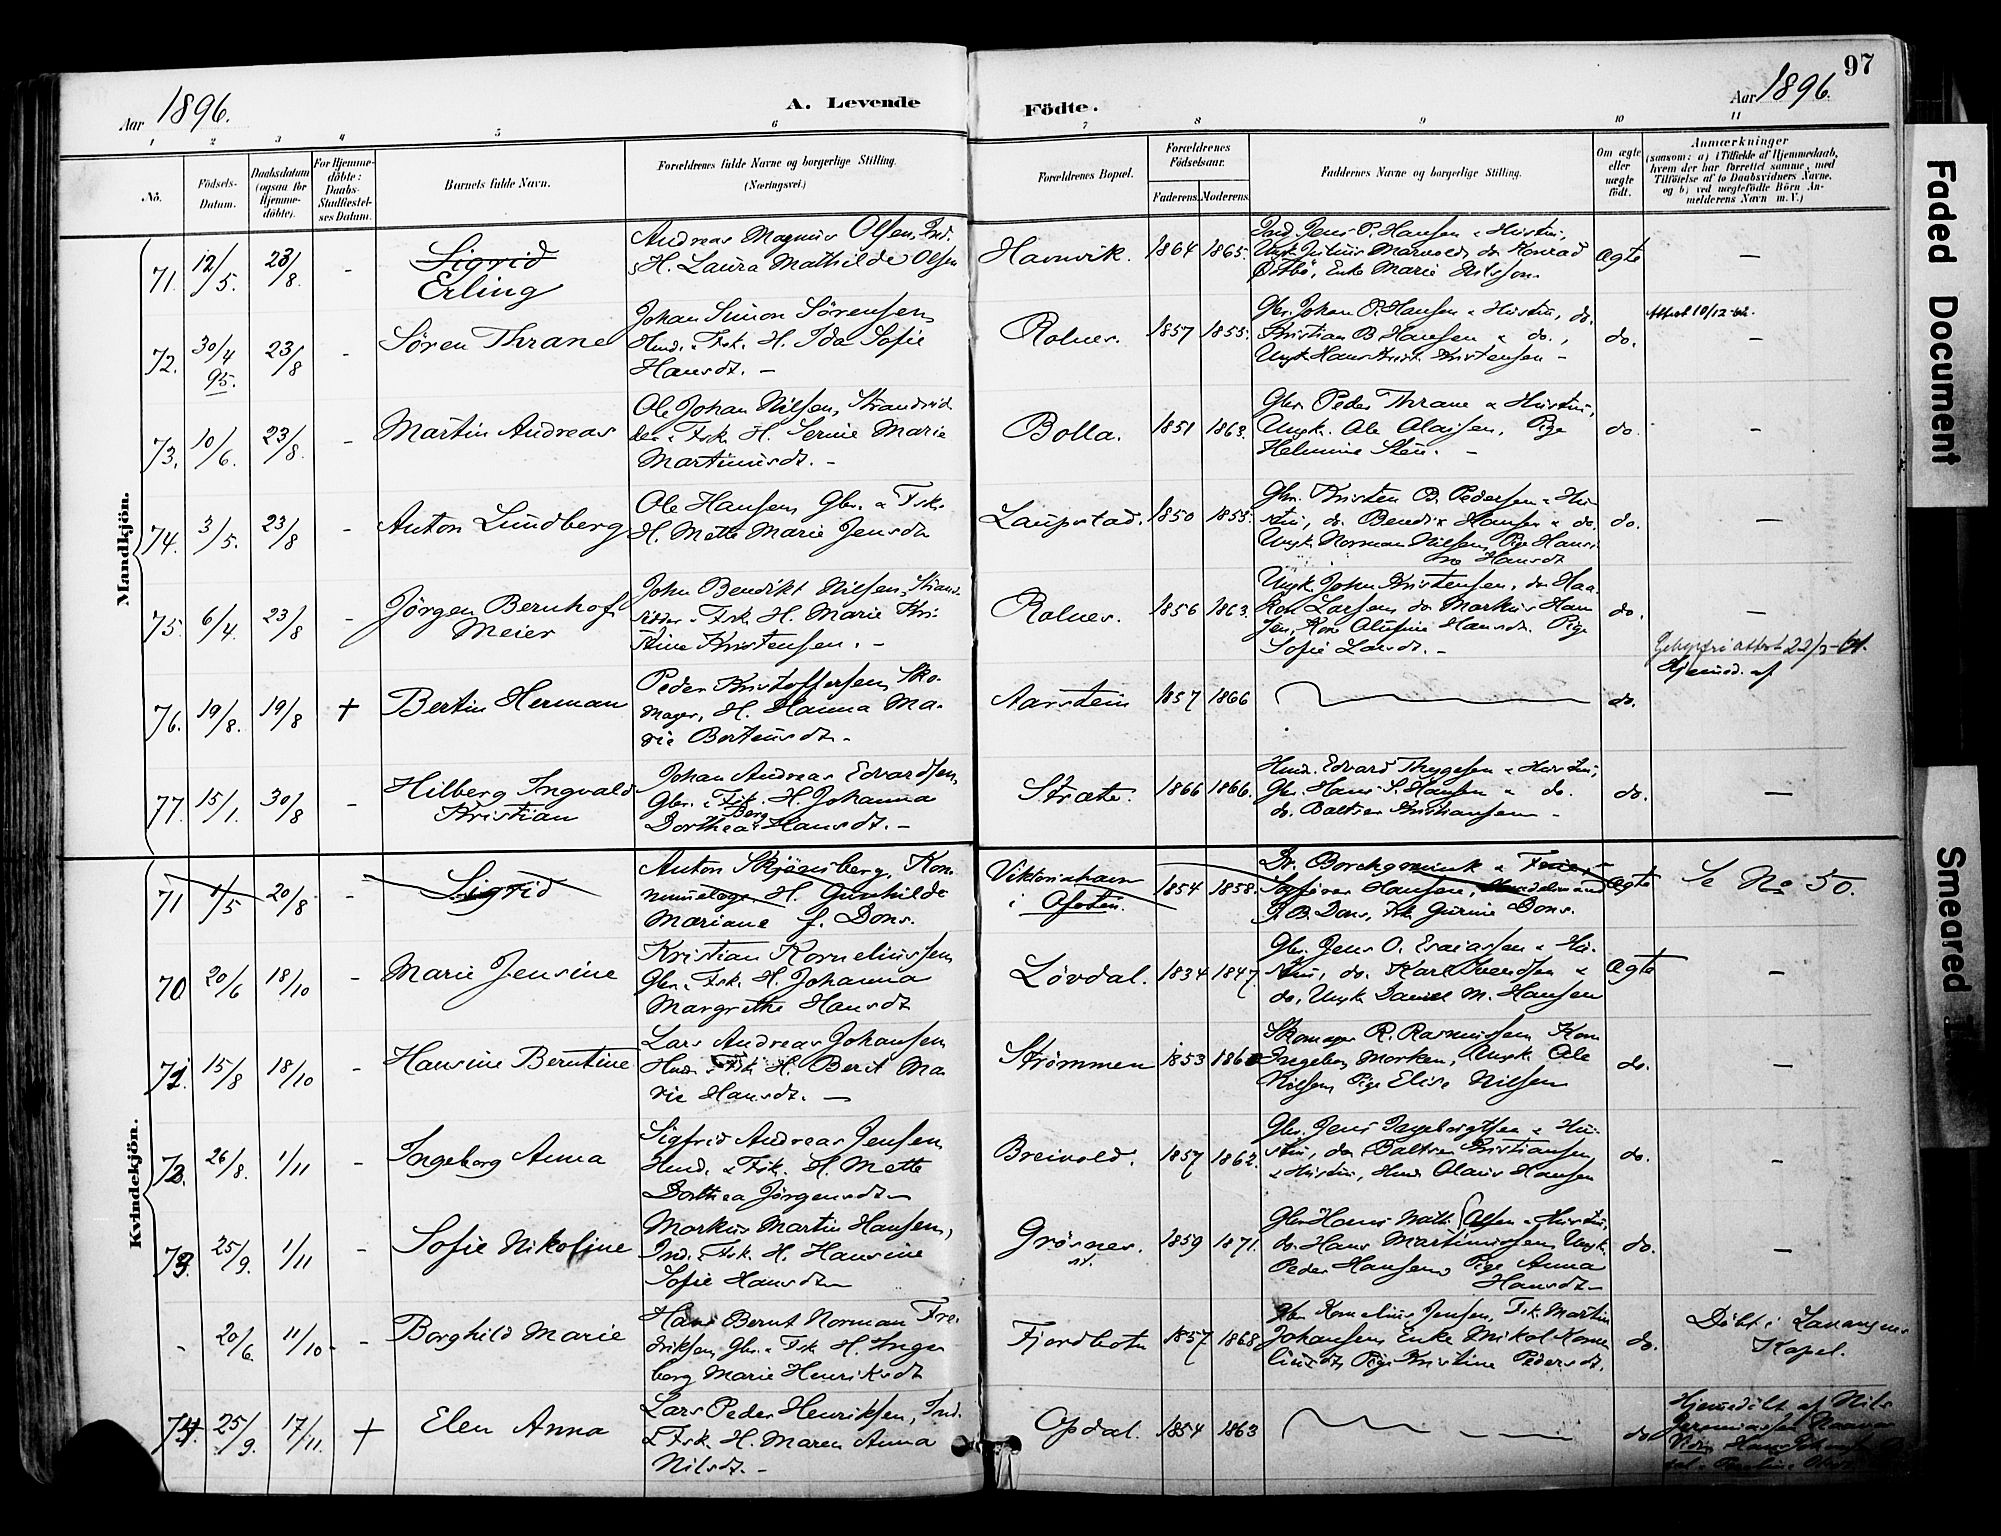 97
Aar 1896.
A. Levende
Födte.
Aar 1896.
1 2 3 4 5 6 7 8 9 10 11
No.
Födsels-
Datum.
Daabsdatum
(ogsaa for
Hjemme-
döbte).
For Hjemme-
döbte:
Daabs-
Stadfæstel-
ses Datum.
Barnets fulde Navn.
Forældrenes fulde Navne og borgerlige Stilling.
(Næringsvei.)
Forældrenes Bopæl.
Forældrenes
Födselsaar.
Faderens. Moderens.
Faddernes Navne og borgerlige Stilling.
Om ægte
eller
uægte
födt.
Anmærkninger
(saasom: a) i Tilfælde af Hjemmedaab,
hvem der har forrettet samme, med
Tilföielse af to Daabsvidners Navne,
og b) ved uægtefödte Börn An-
melderens Navn m. V.)
Mandkjön.
71. 12/5. 23/8. - Sigrid
Erling
Andreas Magnus Olsen, Ind.
H. Laura Mathilde Olsen
Havnvik. 1864 1865.
Jens P. Hansen & Hustru,
Ungk. Julius Marvold, do Konrad
Østbö, Enke Marie
Ægte —
72. 30/4 95. 23/8 - Søren Thrane
Johan Simon Sörensen,
Hmd. & Fsk. H. Ida Sofie
Hansdt. -
Rolnes. 1857 1855.
Gbr. Johan P. Hansen & Hustru, do.
Kristian B Hansen & do.,
Ungk Hans Kristensen -
do. Attest 10/12
—
73. 10/6. 23/8. - Martin Andreas
Ole Johan Nilsen, Strandsid
der & Fsk. H. Serine Marie
Martinusdt. -
Bolla. 1851 1863.
Gbr. Peder Thrane & Hustru,
Ungk. Ole Olaisen, Pige
Helmine Steu. -
do. -
74. 3/5. 23/8 - Anton Lundberg
Ole Hansen, Gbr. & Fsk.
H. Mette Marie Jensdt
Laupstad. 1850 1855.
Gbr. Kristen B. Pedersen & Hu-
stru, do. Bendix Hansen & do.
Ungk Norman Nilsen, Pige Hansi
ne Hansdt
do. —
75. 6/4. 23/8 - Jörgen Bernhof
Meier
John Benedikt Nilsen, Strand
sidder & Fsk. H. Marie Kri-
stine Kristensen. -
Rolnes. 1856 1863.
Ungk. John Kristensen, do Haa-
kon Larsen do Markus Han
sen, Kone Hansdt. Pige
Sofie Larsdt. -
do. —
76. 19/8. 19/8 + Bertin Herman
Peder Kristoffersen, Sko-
mager, H. Hanna Ma-
rie Berteusdt. -
Aarstein 1857 1866
do.
attest 22/3
Hjemmed. af
77. 15/1. 30/8 - Hilberg Ingvald
Kristian
Johan Andreas Edvardsen,
Gbr. & Fsk. H. Johanna
Berg
Dorthea Hansdt. -
Stræte. 1866 1866.
Hmd. Edvard Thygesen & Hustru,
Gbr. Hans S. Hansen & do.
do. Baltser Kristiansen -
do. —
Kvindekjön.
71 1/5 20/8 - Sigrid
Anton Skjönsberg, Kom
munelæge H. Gunhilde
Mariane f. Dons.
Viktoriahavn
i Ofoten. 1854 1858.
Dr. Borchgrevink & Frue,
Hansen, Handelsmand
P. B. Dons, Frk Gurine Dons.
Ægte Se No 50.
70 20/6 18/10 - Marie Jensine
Kristian Korneliussen,
Gbr. & Fsk. H. Johanna
Margrethe Hansdt
Lövdal. 1834 1847.
Gbr. Jens O. Esaiassen & Hu-
stru, do. Karl Svendsen &
do, Ungk Daniel M. Hansen
Ægte —
71. 15/8 18/10 - Hansine Berntine
Lars Andreas Johansen
Hmd. & Fsk H. Berit Ma-
rie Hansdt. —
Strømmen 1853 186
Skomager R. Rasmussen, Kone
Ingeborg Morken, Ungk Ole
Nilsen, Pige Elise Nilsen
do. —
72. 26/8. 1/11 - Ingeborg Anna
Sigfrid Andreas Jensen,
Hmd. & Fsk. H. Mette
Dorthea Jörgensdt -
Breivold. 1857 1862.
Gbr. Jens Ingebrigtsen & Hu-
stru, do Baltser Kristiansen
& Hustru, Hmd Olaus Hansen
do. —
73. 25/9. 1/11 - Sofie Nikoline
Markus Martin Hansen,
Ind. & Fsk. H. Hansine
Sofie Hansdt -
Grøsnes. 1859 1871.
Gbr. Hans Math. Olsen & Hustru,
do. Hans Martinussen, Ungk.
Peder Hansen, Pige Anna
Hansdt -
do. —
- 20/6 11/10 - Borghild Marie
Hans Bernt Norman Fre-
driksen, Gbr. & Fsk H. Inge
borg Marie Henriksdt
Fjordbotn 1857 1868.
Gbr Kornelius Jensen, Fsk. Martin
Johansen, Enke Nikol. Korne
liusdt, Pige Kristine Pedersdt.
do. Döbt i Lavangens
Kapel.
74. 25/9. 17/11. + Elen Anna
Lars Peder Henriksen, Ind.
& Fsk. H. Maren Anna
Nilsdt. -
Opdal. 1854 1863
do Hjemmedöbt af Nils
Faded Document
Smeared